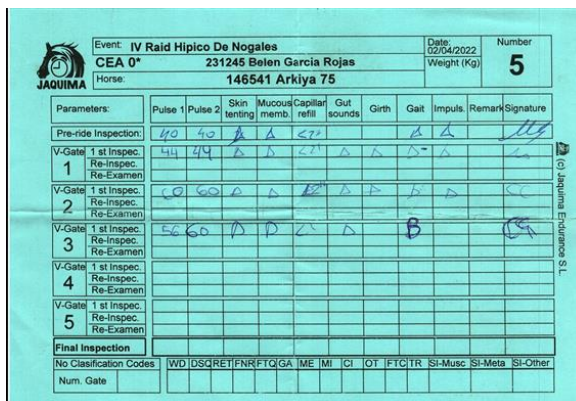 Event: IV Raid Hipico De Nogales Date: 02/04/2022 Number
CEA 0* 231245 Belen Garcia Rojas Weight (Kg) 5
JAQUIMA Horse: 146541 Arkiya 75
Parameters: Pulse 1 Pulse 2 Skin tenting Mucous memb. Capillar refill Gut sounds Girth Gait Impuls. Remark Signature
Pre-ride Inspection: 40 40 A A <2" A A
V-Gate 1 1 st Inspec. 44 44 A A <2" A A A-
Re-Inspec.
Re-Examen
V-Gate 2 1 st Inspec. 60 60 A A A A A A
Re-Inspec.
Re-Examen
V-Gate 3 1 st Inspec. 56 60 A B
Re-Inspec.
Re-Examen
V-Gate 4 1 st Inspec.
Re-Inspec.
Re-Examen
V-Gate 5 1 st Inspec.
Re-Inspec.
Re-Examen
Final Inspection
No Clasification Codes WD DSQ RET FNR FTQ GA ME MI CI OT FTC TR SI-Musc SI-Meta SI-Other
Num. Gate
(c) Jaquima Endurance S.L.